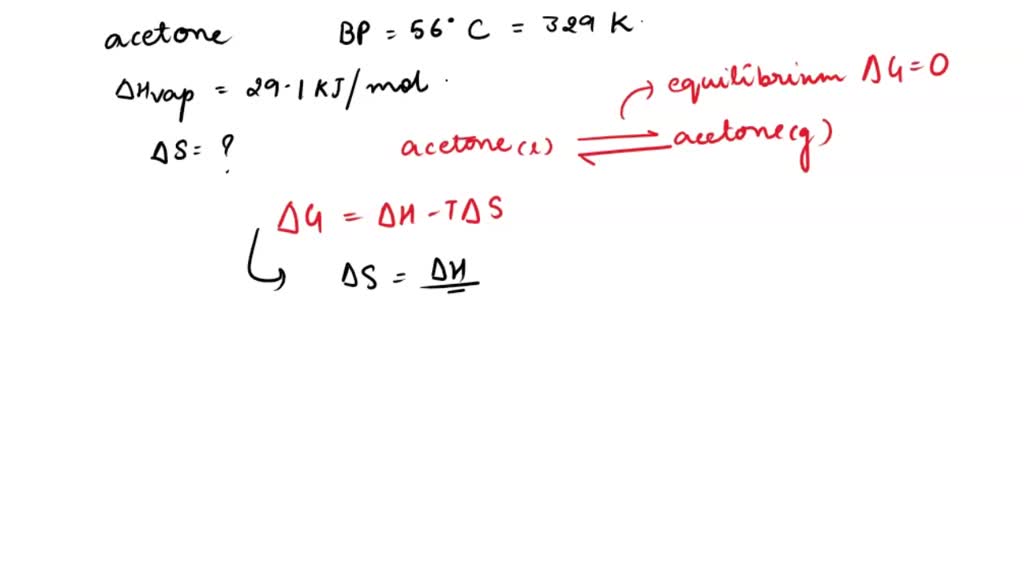 acetone BP = 56° C = 329 K
ΔHvap = 29.1 KJ/mol
equilibrium ΔG=0
ΔS= ?
acetone(l) ⇌ acetone(g)
ΔG = ΔH -TΔS
ΔS = ΔH